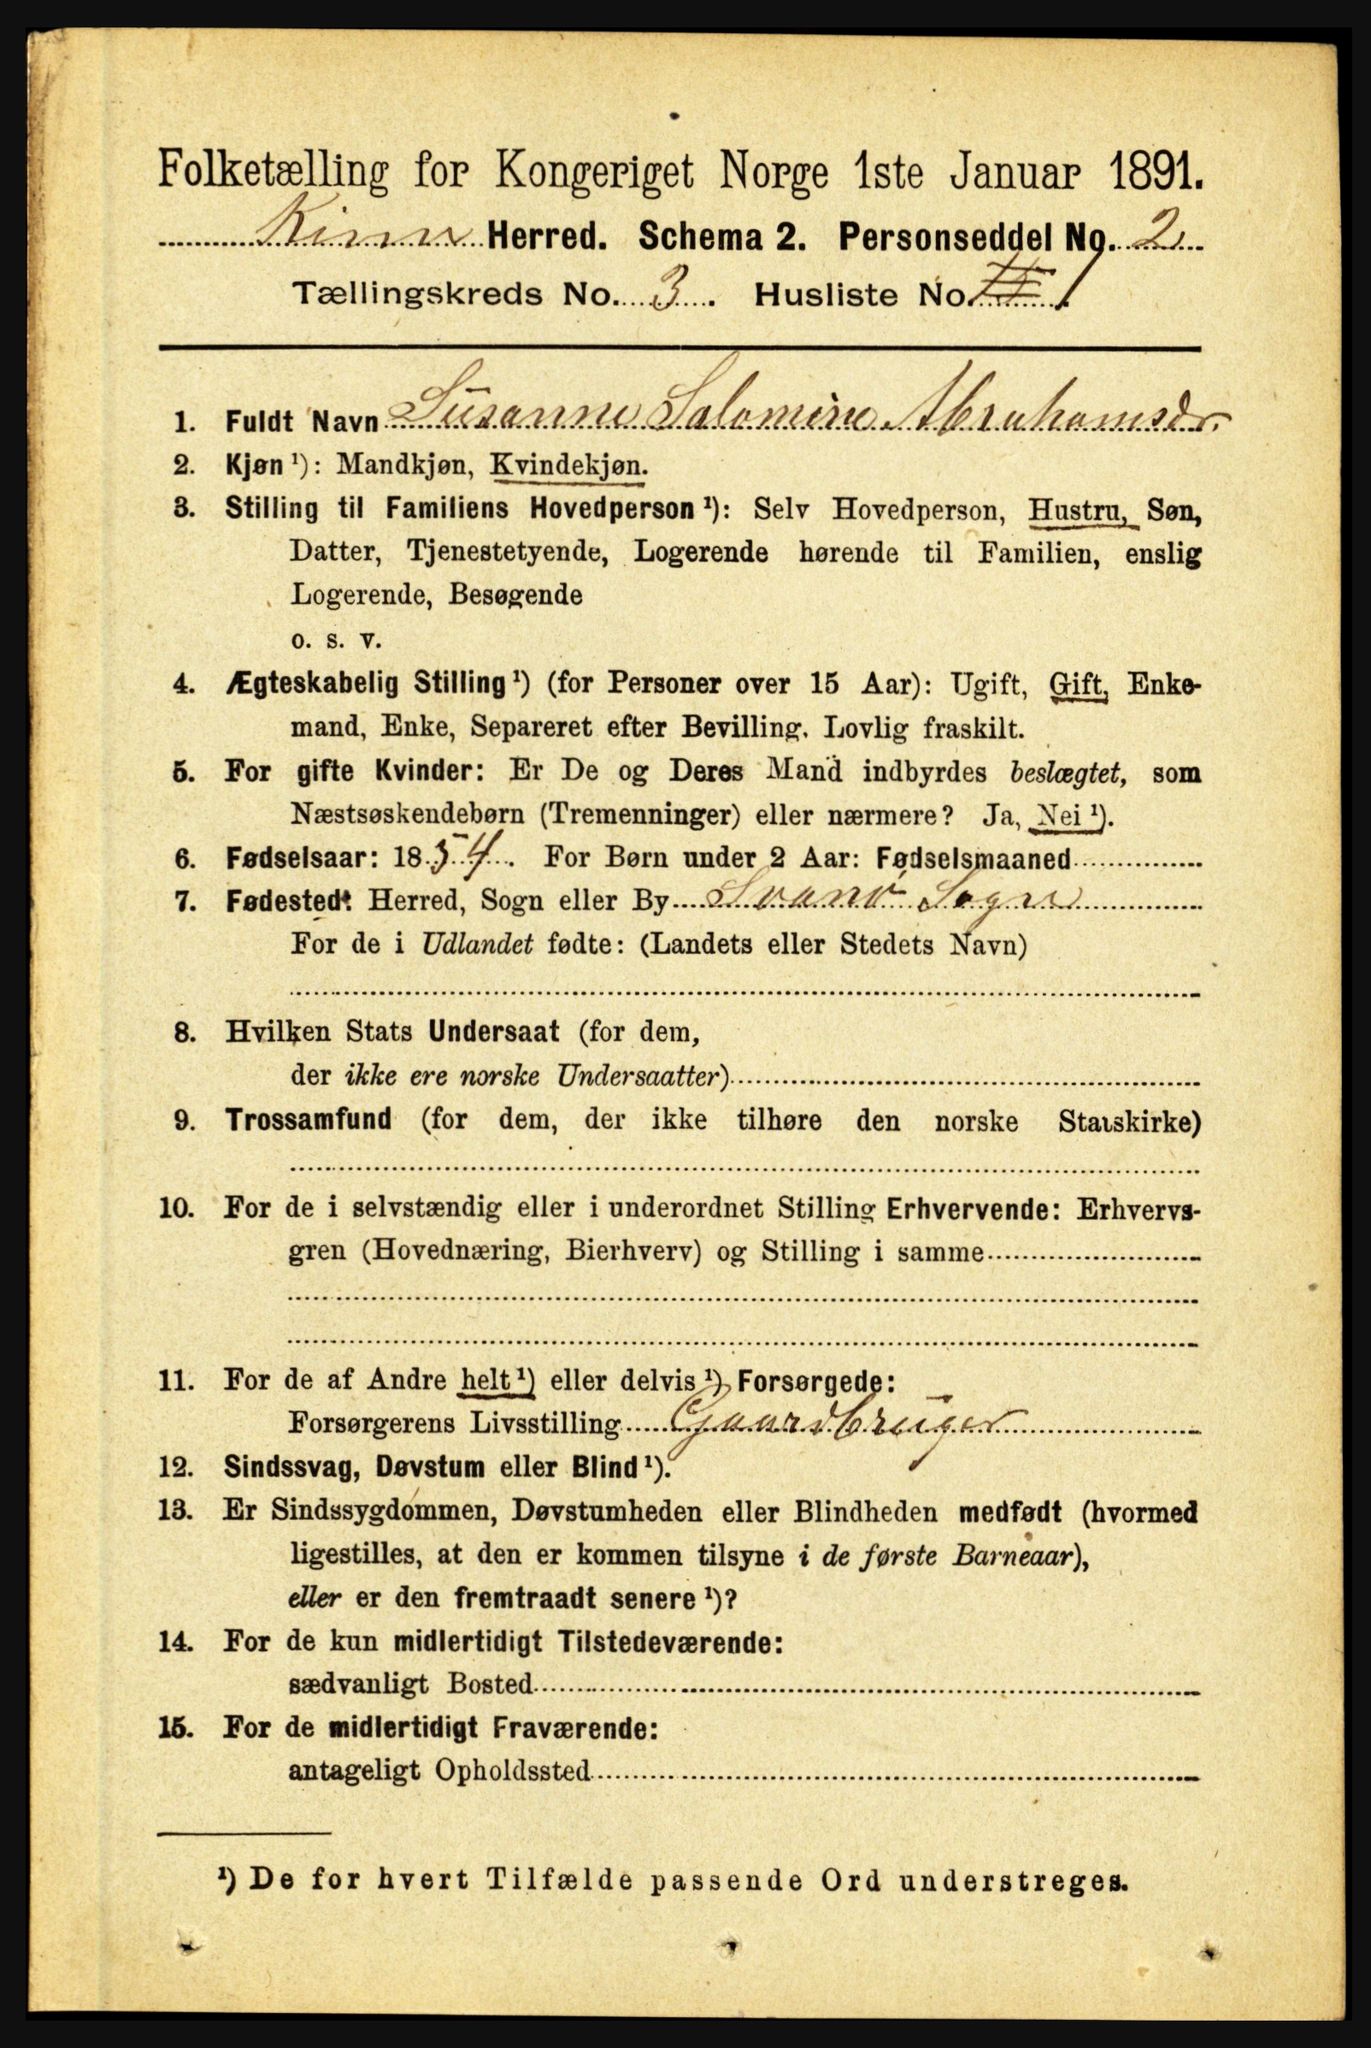 Folketælling for Kongeriget Norge 1ste Januar 1891.
Kinn Herred. Schema 2. Personseddel No. 2
Tællingskreds No. 3. Husliste No. 1
1. Fuldt Navn Susanne Salomine Abrahamsdr.
2. Kjøn ¹): Mandkjøn, Kvindekjøn.
3. Stilling til Familiens Hovedperson ¹): Selv Hovedperson, Hustru, Søn,
Datter, Tjenestetyende, Logerende hørende til Familien, enslig
Logerende, Besøgende
o. s. v.
4. Ægteskabelig Stilling ¹) (for Personer over 15 Aar): Ugift, Gift, Enke-
mand, Enke, Separeret efter Bevilling. Lovlig fraskilt.
5. For gifte Kvinder: Er De og Deres Mand indbyrdes beslægtet, som
Næstsøskendebørn (Tremenninger) eller nærmere? Ja, Nei ¹).
6. Fødselsaar: 1854. For Børn under 2 Aar: Fødselsmaaned
7. Fødested: Herred, Sogn eller By Svanø Sogn
For de i Udlandet fødte: (Landets eller Stedets Navn)
8. Hvilken Stats Undersaat (for dem,
der ikke ere norske Undersaatter)
9. Trossamfund (for dem, der ikke tilhøre den norske Statskirke)
10. For de i selvstændig eller i underordnet Stilling Erhvervende: Erhvervs-
gren (Hovednæring, Bierhverv) og Stilling i samme
11. For de af Andre helt ¹) eller delvis ¹) Forsørgede:
Forsørgerens Livsstilling Gaardbruger
12. Sindssvag, Døvstum eller Blind ¹).
13. Er Sindssygdommen, Døvstumheden eller Blindheden medfødt (hvormed
ligestilles, at den er kommen tilsyne i de første Barneaar),
eller er den fremtraadt senere ¹)?
14. For de kun midlertidigt Tilstedeværende:
sædvanligt Bosted
15. For de midlertidigt Fraværende:
antageligt Opholdssted
¹) De for hvert Tilfælde passende Ord understreges.